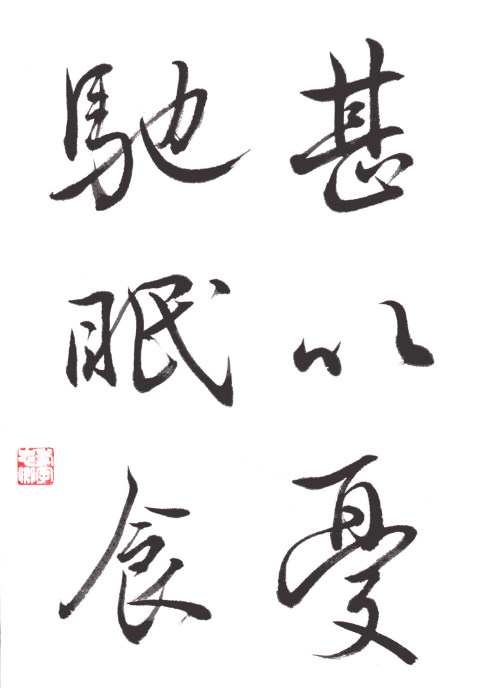 甚以憂
馳眠食